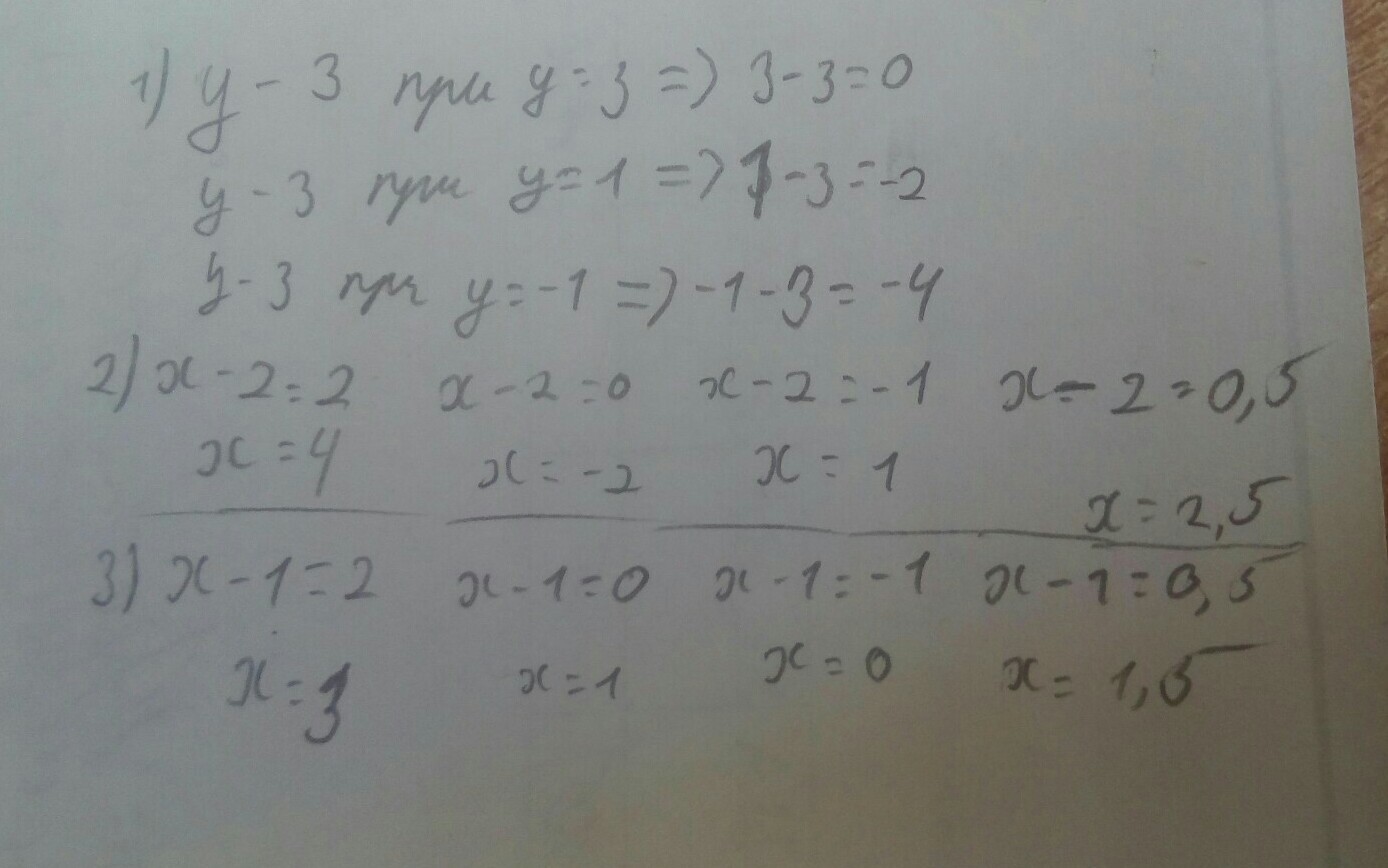 1) y - 3 при y = 3 => 3 - 3 = 0
y - 3 при y = 1 => 1 - 3 = -2
y - 3 при y = -1 => -1 - 3 = -4
2) x - 2 = 2 x - 2 = 0 x - 2 = -1 x - 2 = 0,5
x = 4 x = -2 x = 1 x = 2,5
3) x - 1 = 2 x - 1 = 0 x - 1 = -1 x - 1 = 0,5
x = 3 x = 1 x = 0 x = 1,5